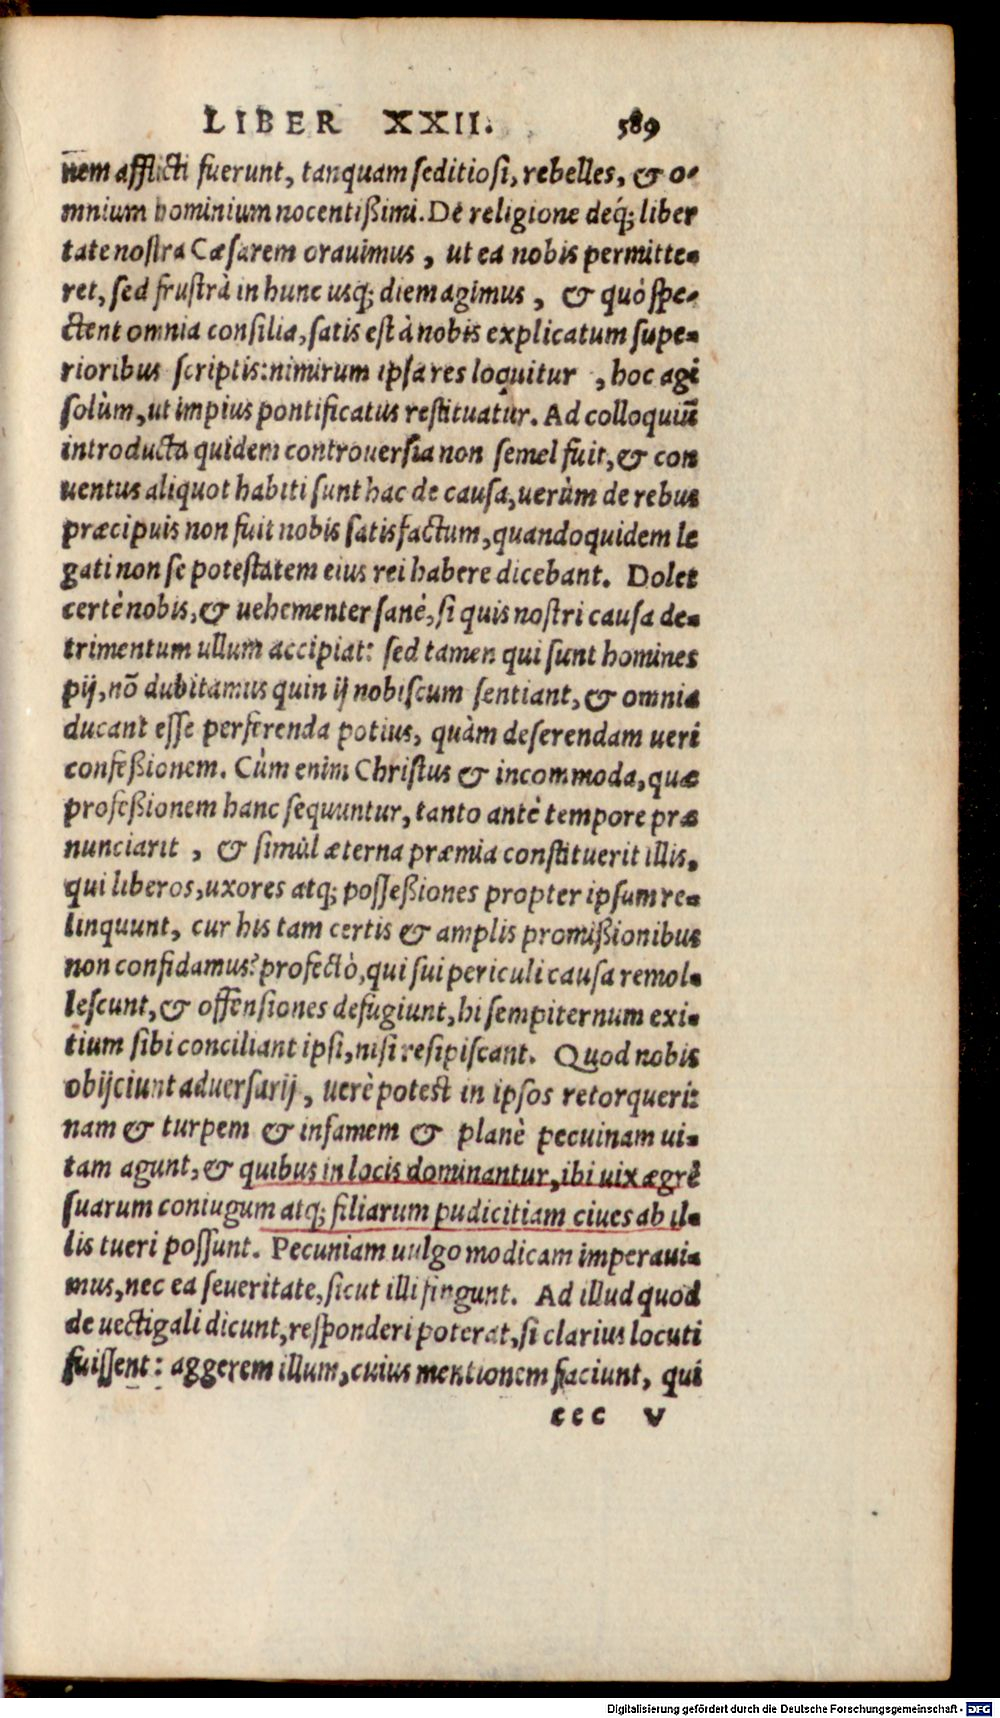 LIBER XXII. 589
nem afflicti fuerunt, tanquam seditiosi, rebelles, & o-
mnium hominium nocentißimi. De religione deq́; liber
tate nostra Cæsarem orauimus, ut ea nobis permitte-
ret, sed frustrà in hunc usq; diem agimus, & quò spe-
ctent omnia consilia, satis est à nobis explicatum supe-
rioribus scriptis: nimirum ipsa res loquitur, hoc agi
solùm, ut impius pontificatus restituatur. Ad colloquiū
introducta quidem controuersia non semel fuit, & con
uentus aliquot habiti sunt hac de causa, uerùm de rebus
præcipuis non fuit nobis satisfactum, quandoquidem le
gati non se potestatem eius rei habere dicebant. Dolet
certè nobis, & uehementer sanè, si quis nostri causa de-
trimentum ullum accipiat: sed tamen qui sunt homines
pij, nō dubitamus quin ij nobiscum sentiant, & omnia
ducant esse perferenda potius, quàm deserendam ueri
confeßionem. Cùm enim Christus & incommoda, quæ
profeßionem hanc sequuntur, tanto antè tempore præ
nunciarit, & simùl æterna præmia constituerit illis,
qui liberos, uxores atq; posseßiones propter ipsum re-
linquunt, cur his tam certis & amplis promißionibus
non confidamus? profectò, qui sui periculi causa remol-
lescunt, & offensiones defugiunt, hi sempiternum exi-
tium sibi conciliant ipsi, nisi resipiscant. Quod nobis
obijciunt aduersarij, uerè potest in ipsos retorqueri:
nam & turpem & infamem & planè pecuinam ui-
tam agunt, & quibus in locis dominantur, ibi uix ægrè
suarum coniugum atq; filiarum pudicitiam ciues ab il-
lis tueri possunt. Pecuniam uulgo modicam imperaui-
mus, nec ea seueritate, sicut illi fingunt. Ad illud quod
de uectigali dicunt, responderi poterat, si clarius locuti
fuissent: aggerem illum, cuius mentionem faciunt, qui
ccc v
Digitalisierung gefördert durch die Deutsche Forschungsgemeinschaft - DFG